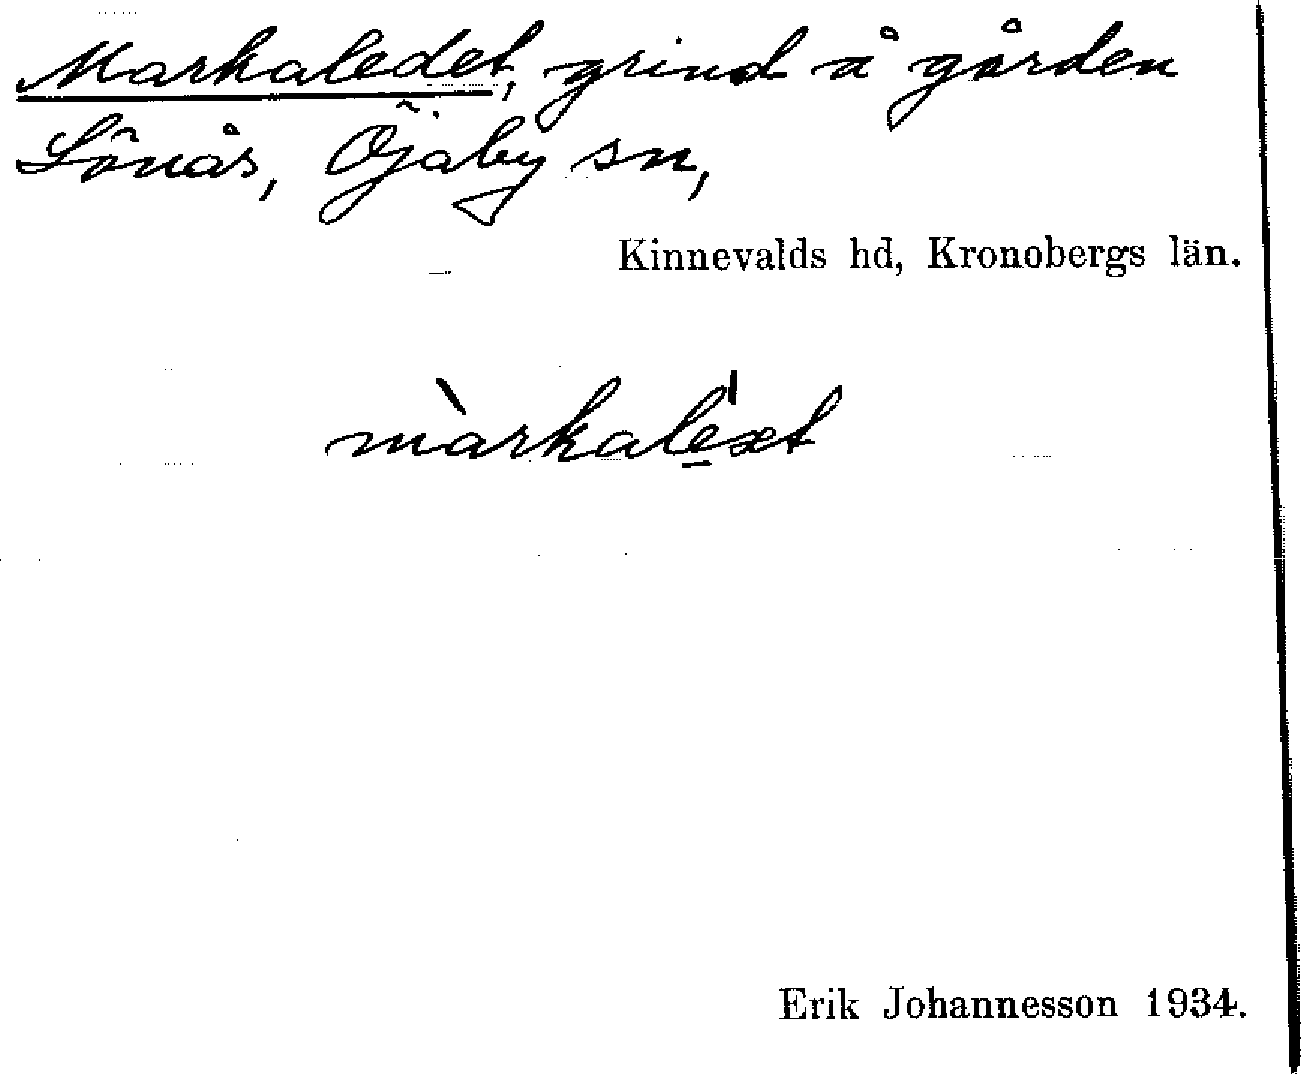 Markaledet, grind å gården
Lönås, Öjaby sn,
Kinnevalds hd, Kronobergs län.
màrkalèxt
Erik Johannesson 1934.